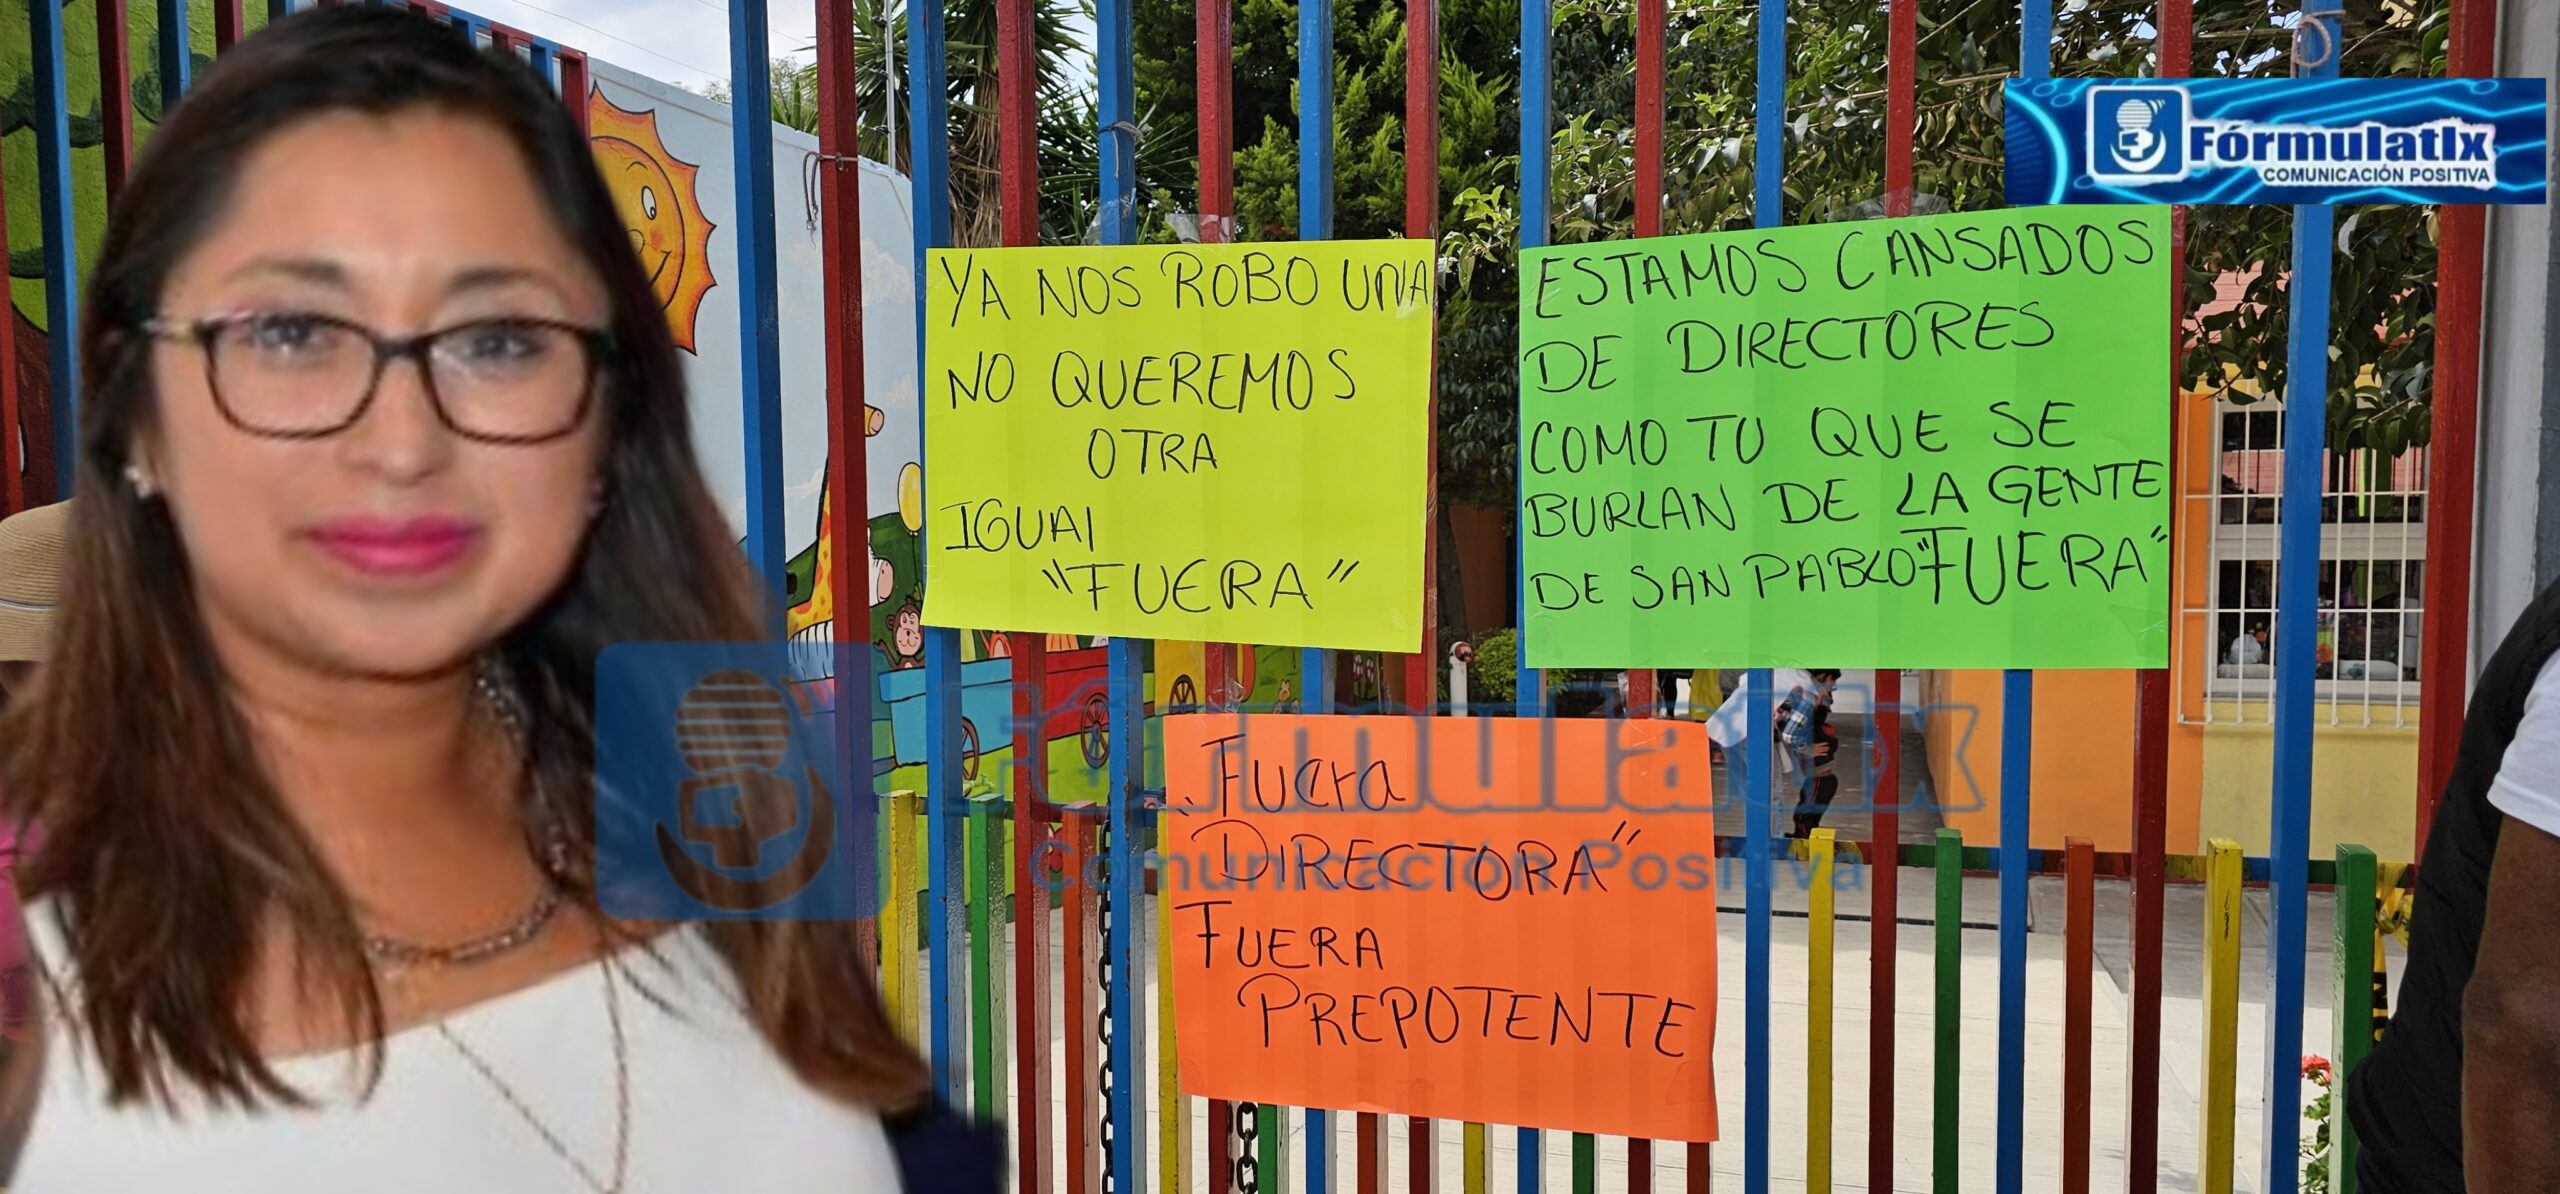 Fórmulatlx
COMUNICACIÓN POSITIVA
YA NOS ROBO UNA
NO QUEREMOS
OTRA
IGUAl
"FUERA"
ESTAMOS CANSADOS
DE DIRECTORES
COMO TU QUE SE
BURLAN DE LA GENTE
DE SAN PABLO "FUERA"
Fórmulatlx
Comunicación Positiva
"Fuera
DIRECTORA"
FUERA
PREPOTENTE